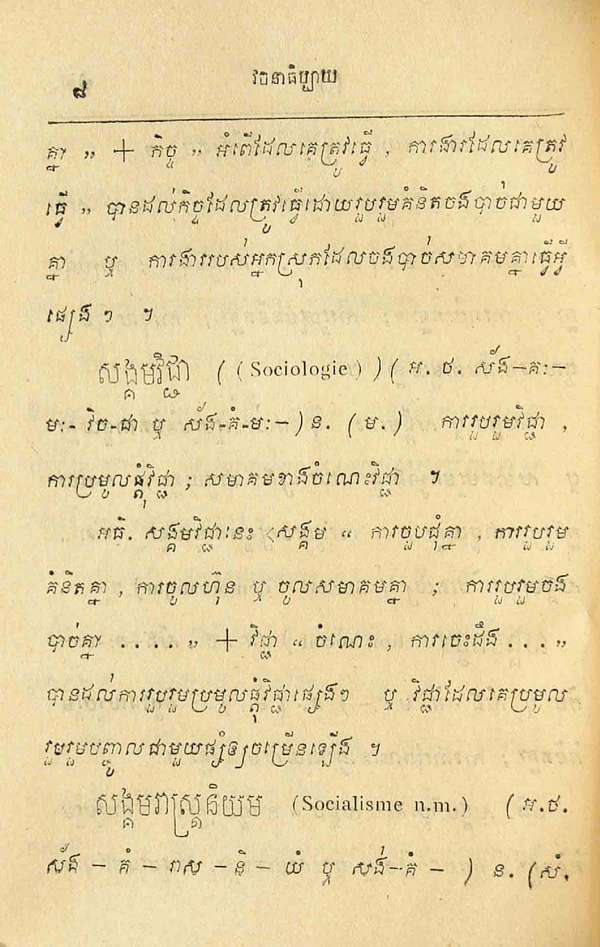 វចនាធិប្បាយ
៨
គ្នា » + កិច្ច » អំពើដែលគេត្រូវធ្វើ , ការងារដែលគេត្រូវ
ធ្វើ » បានដល់កិច្ចដែលត្រូវធ្វើដោយរួបរួមគំនិតចងបាច់ជាមួយ
គ្នា ឬ ការងាររបស់អ្នកស្រុកដែលចងបាច់សមាគមគ្នាធ្វើអ្វី
ផ្សេងៗ ។
សង្គមវិជ្ជា ( (Sociologie) ) ( អ. ថ. ស័ង–គៈ–
មៈ- វិច-ជា ឬ ស័ង-គំ-មៈ-) ន. (ម.) ការរួបរួមវិជ្ជា ,
ការប្រមូលផ្តុំវិជ្ជា ; សមាគមខាងចំណេះវិជ្ជា ។
អធិ. សង្គមវិជ្ជានេះ សង្គម “ ការជួបជុំគ្នា , ការរួបរួម
គំនិតគ្នា , ការចូលហ៊ុន ឬ ចូលសមាគមគ្នា ; ការរួបរួមចង
បាច់គ្នា .... » + វិជ្ជា “ ចំណេះ , ការចេះដឹង ...»
បានដល់ការរួបរួមប្រមូលផ្តុំវិជ្ជាផ្សេងៗ ឬ វិជ្ជាដែលគេប្រមូល
រួមរួមបញ្ចូលជាមួយផ្សំឲ្យចម្រើនឡើង ។
សង្គមរាស្ត្រនិយម (Socialisme n.m.) (អ.ថ.
ស័ង – គំ – រាស – និ – យំ ឬ សង់–គំ – ) ន. (សំ.